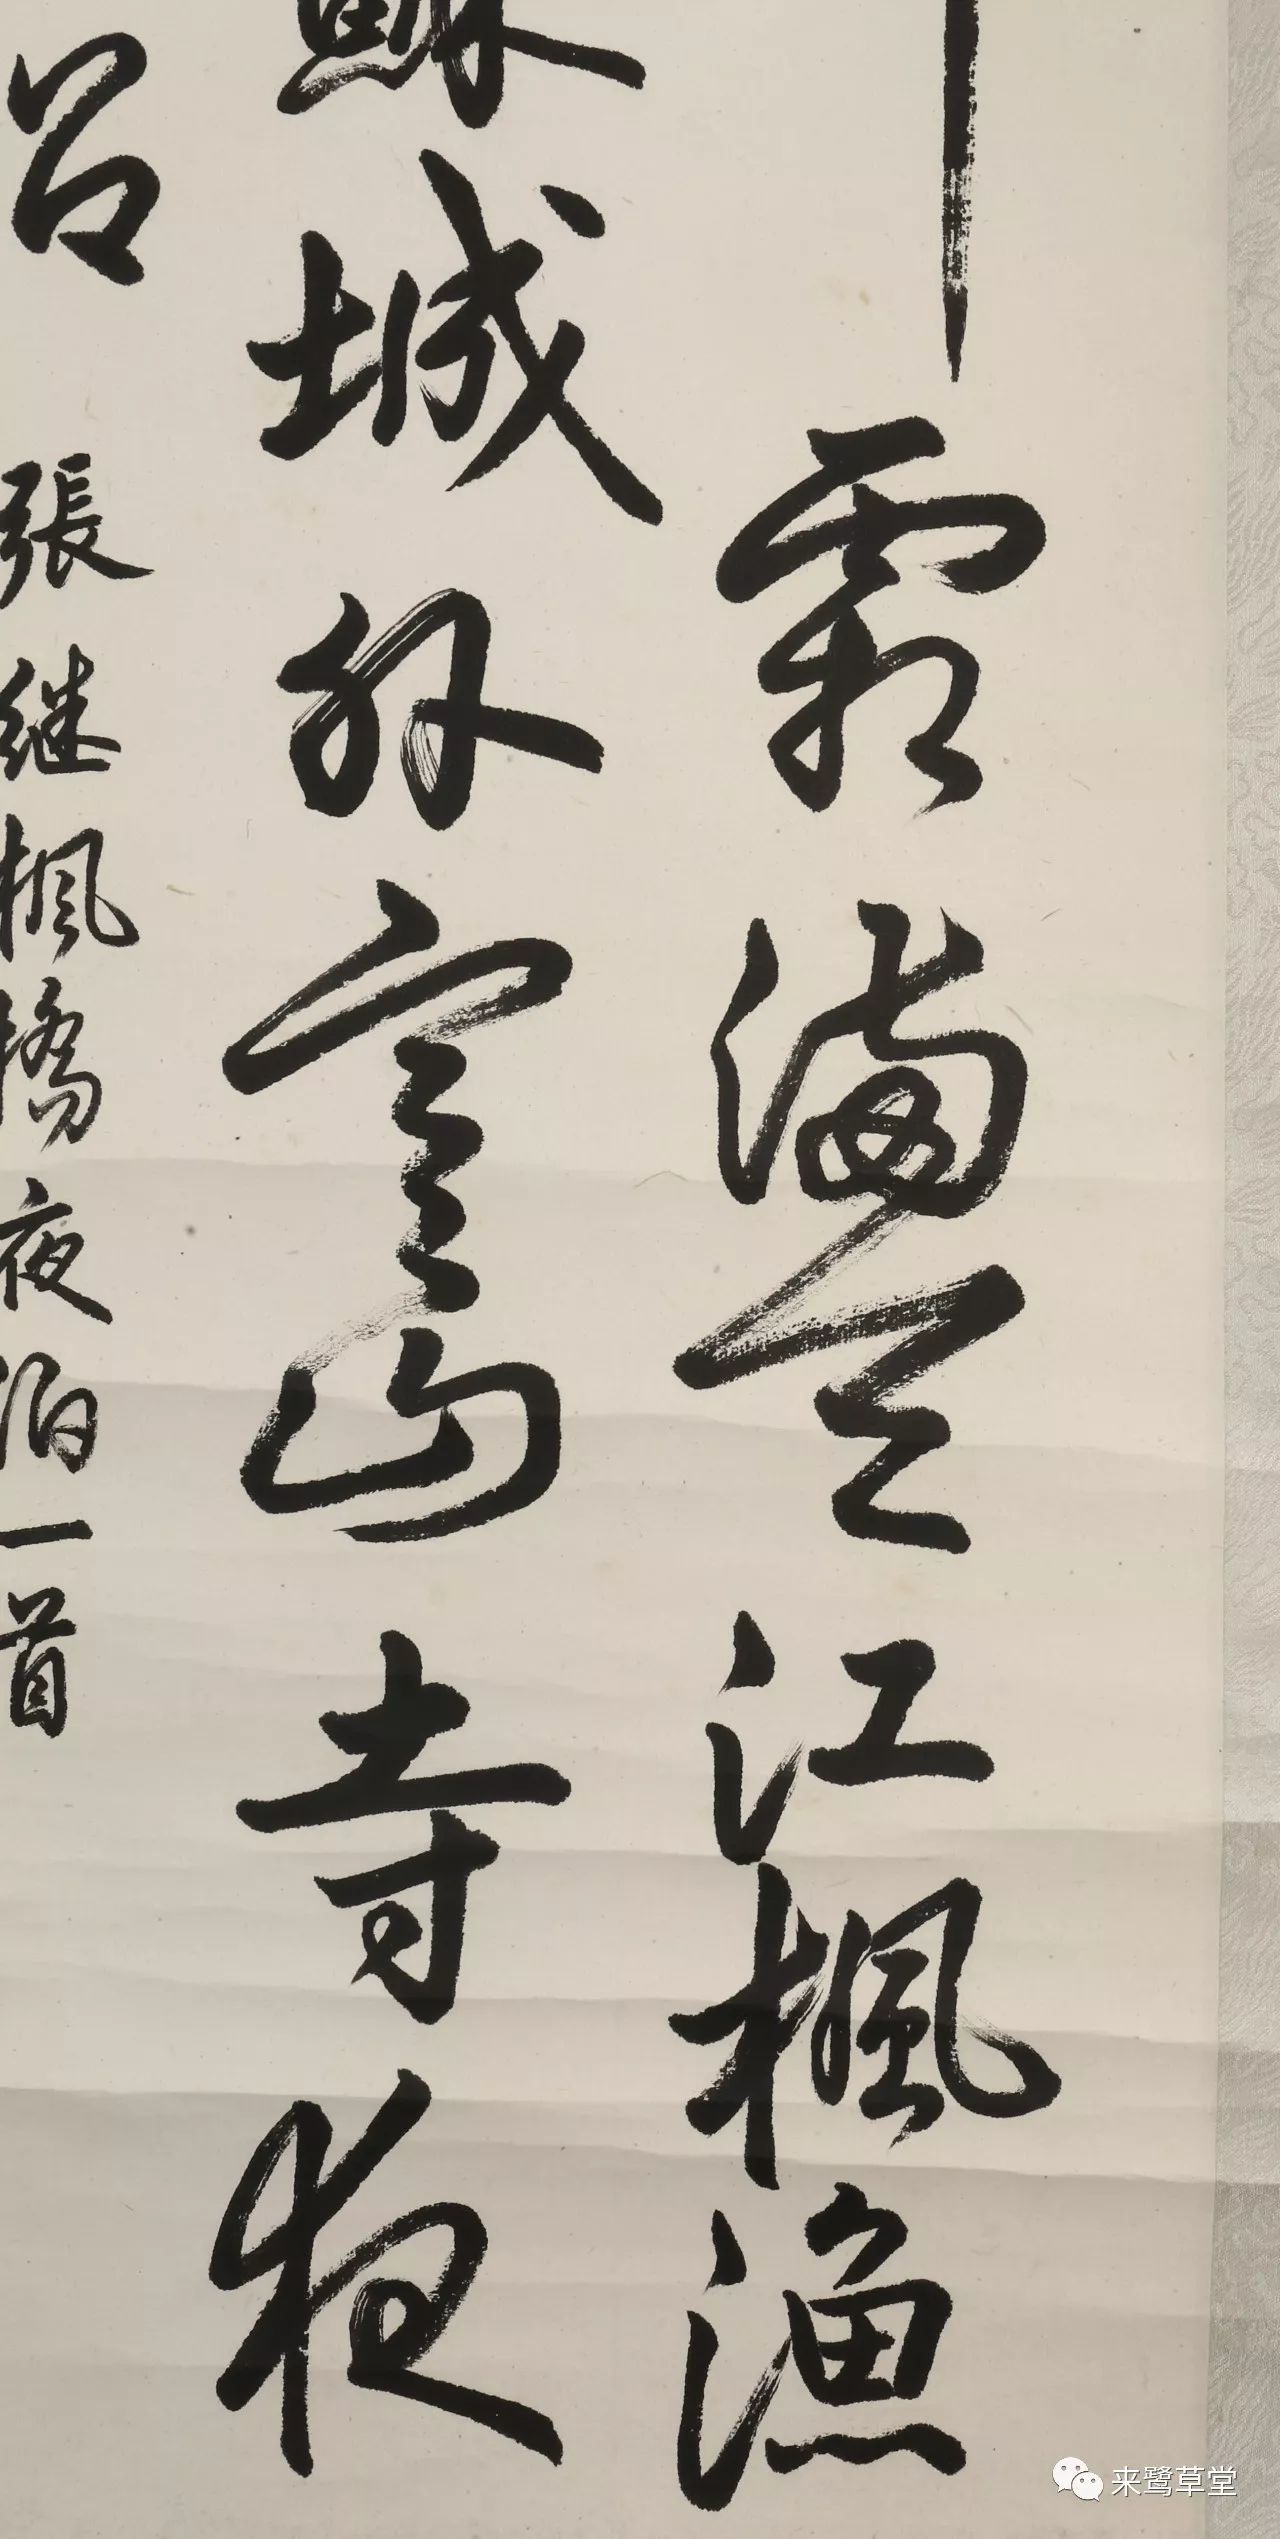 霜滿天江楓漁
蘇城外寒山寺夜
張继楓橋夜泊一首
来鹭草堂